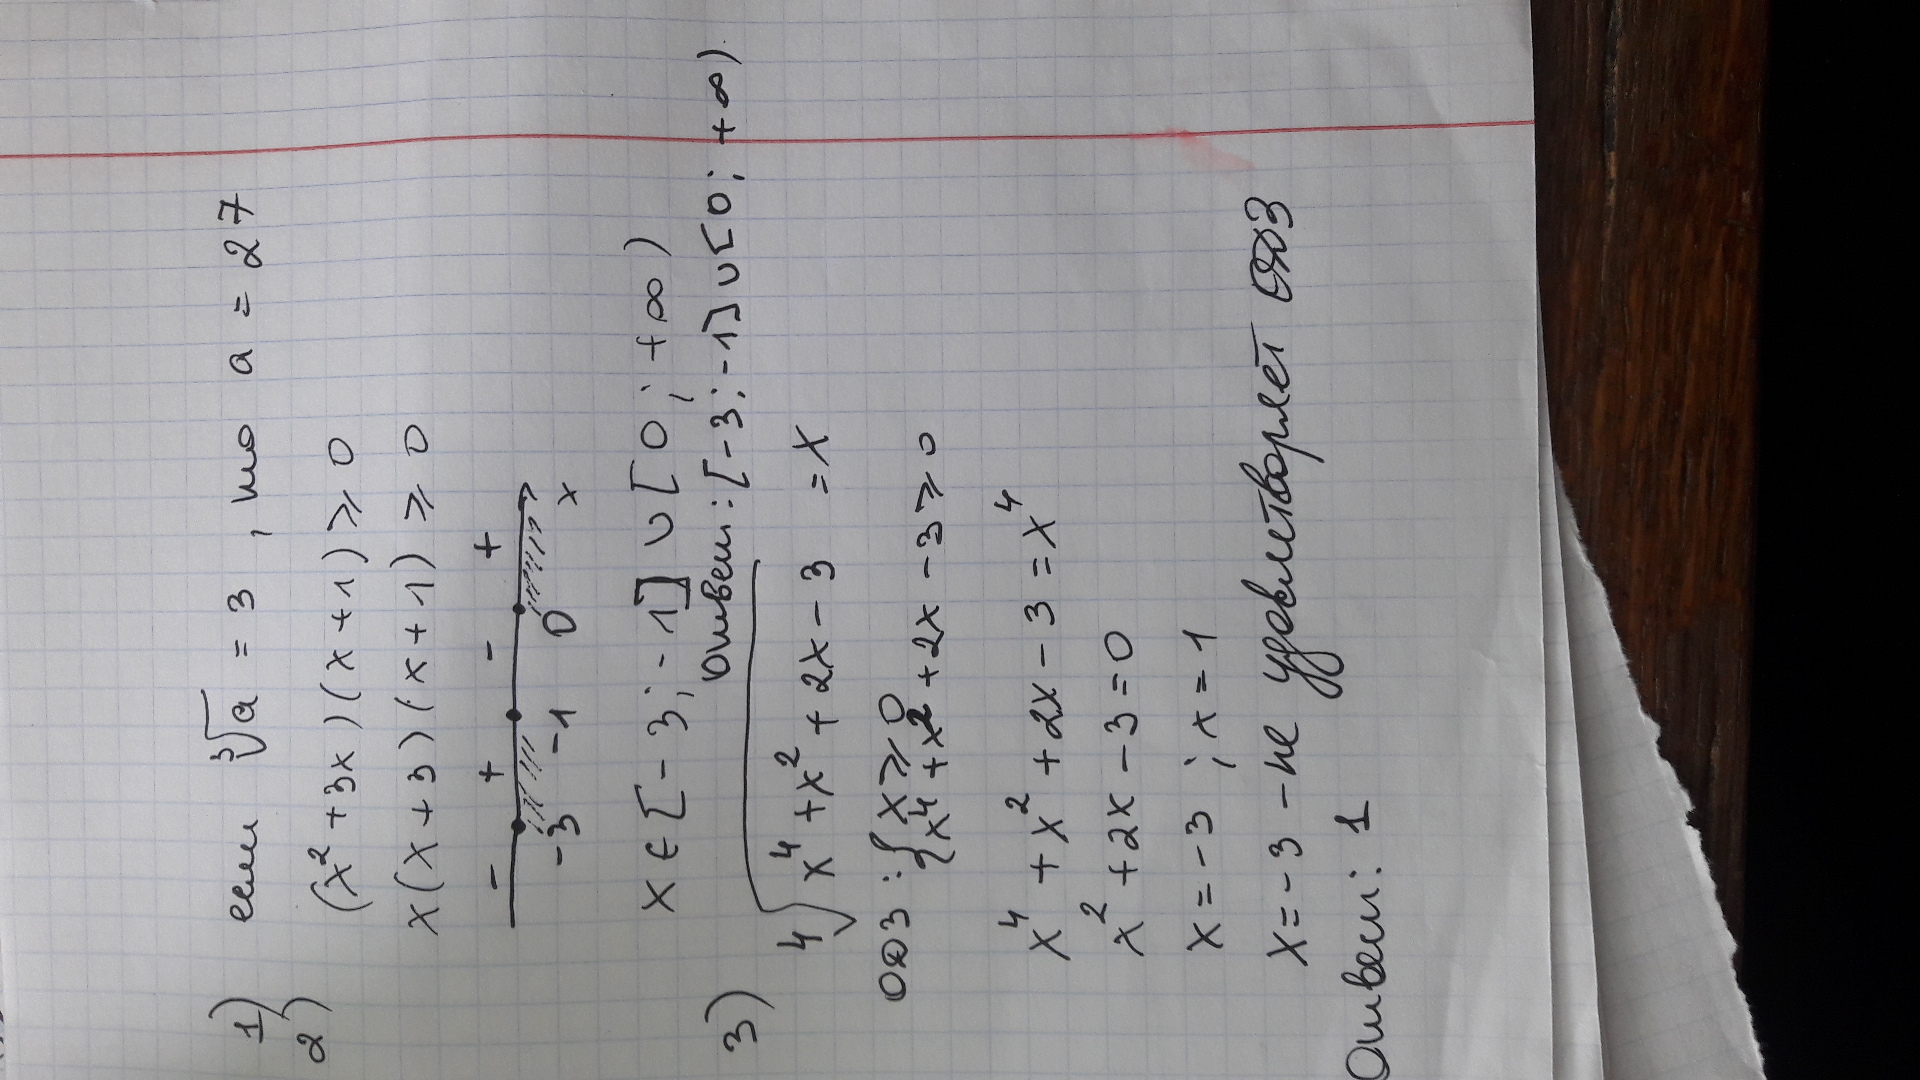 1) если ∛a = 3, то a = 27
2) (x² + 3x)(x + 1) ⩾ 0
x(x + 3)(x + 1) ⩾ 0
- + - +
-3 -1 0 x
x ∈ [-3; -1] ∪ [0; +∞)
Ответ: [-3; -1] ∪ [0; +∞)
3) ∜(x⁴ + x² + 2x - 3) = x
ОДЗ: { x ⩾ 0
x⁴ + x² + 2x - 3 ⩾ 0
x⁴ + x² + 2x - 3 = x⁴
x² + 2x - 3 = 0
x = -3 ; x = 1
x = -3 - не удовлетворяет ОДЗ
Ответ: 1